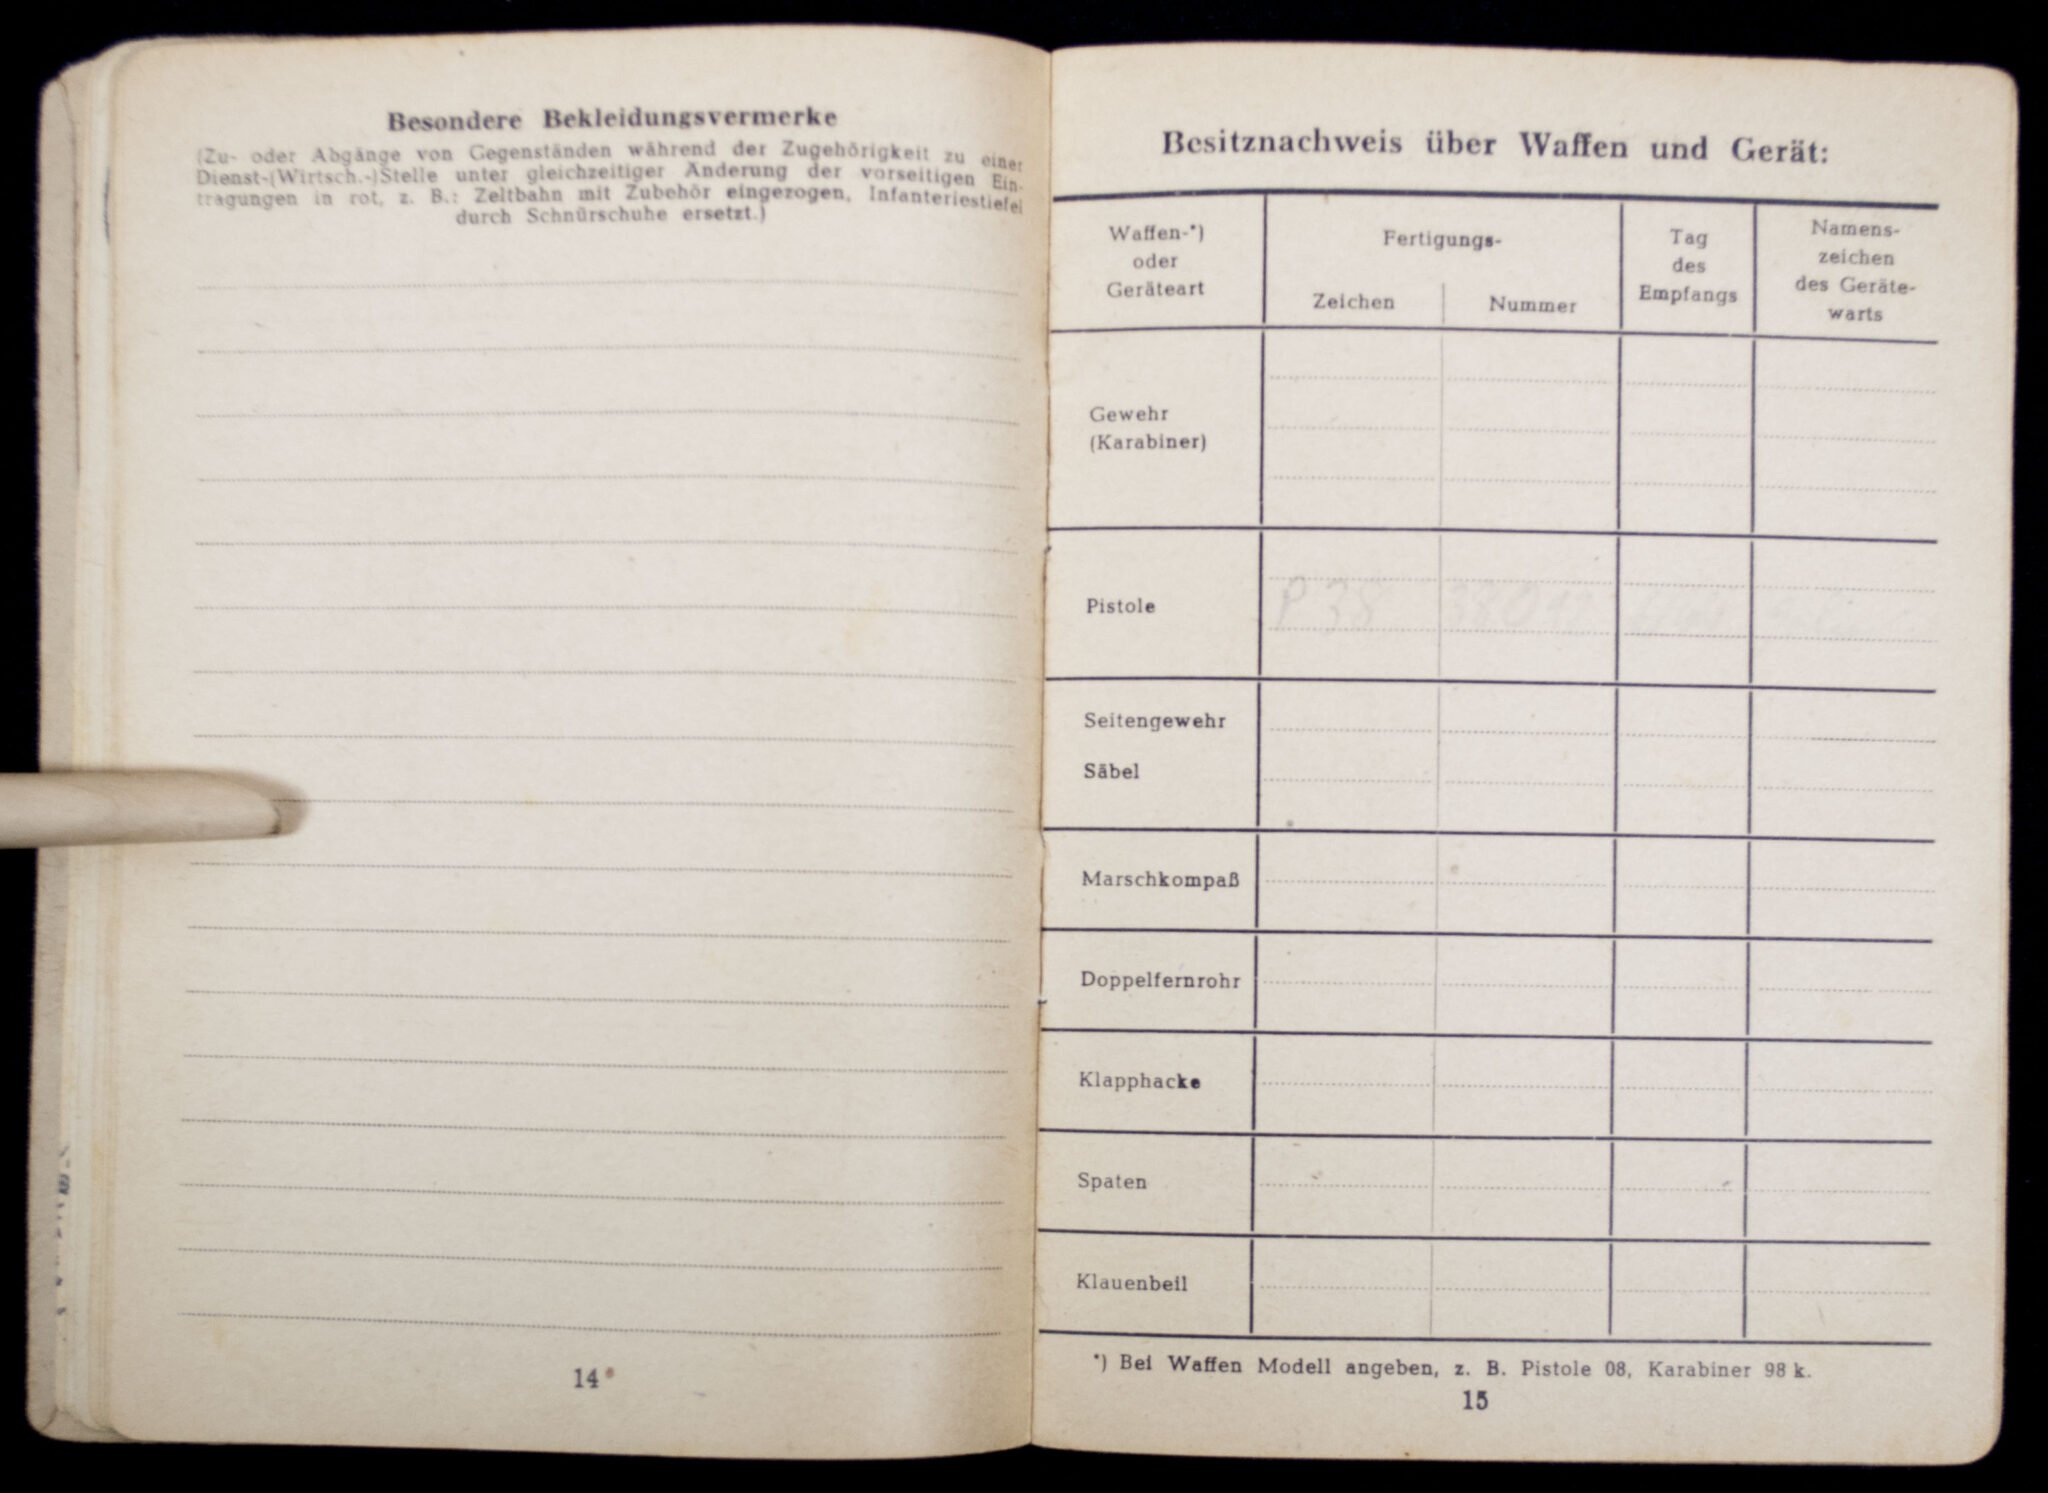 Besondere Bekleidungsvermerke
(Zu- oder Abgänge von Gegenständen während der Zugehörigkeit zu einer
Dienst-(Wirtsch.-)Stelle unter gleichzeitiger Änderung der vorseitigen Ein-
tragungen in rot, z. B.: Zeltbahn mit Zubehör eingezogen, Infanteriestiefel
durch Schnürschuhe ersetzt.)
14
Besitznachweis über Waffen und Gerät:
Waffen-*)
oder
Geräteart
Fertigungs-
Zeichen
Nummer
Tag
des
Empfangs
Namens-
zeichen
des Geräte-
warts
Gewehr
(Karabiner)
Pistole
P 38
Seitengewehr
Säbel
Marschkompaß
Doppelfernrohr
Klapphacke
Spaten
Klauenbeil
*) Bei Waffen Modell angeben, z. B. Pistole 08, Karabiner 98 k.
15